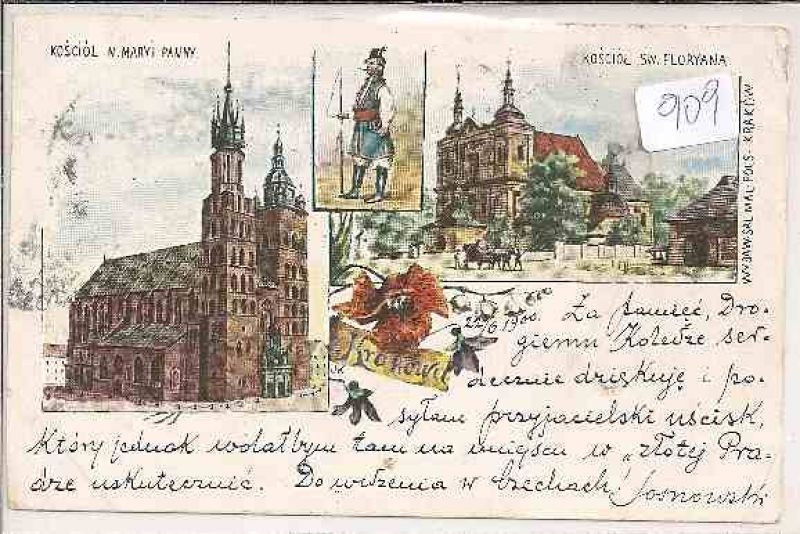 KOŚCIÓŁ N. MARYI PANNY.
KOŚCIÓŁ ŚW. FLORYANA
909
WYDAW. SAL. MAL. POLS. KRAKÓW
Kraków
22/6 1900.
Za pamięć, Dro-
giemu Koledze ser-
decznie dziękuję i po-
syłam przyjacielski uścisk,
który jednak wolałbym tam na miejscu w „złotej Pra-
dze uskutecznić. Do widzenia w Czechach! Sosnowski